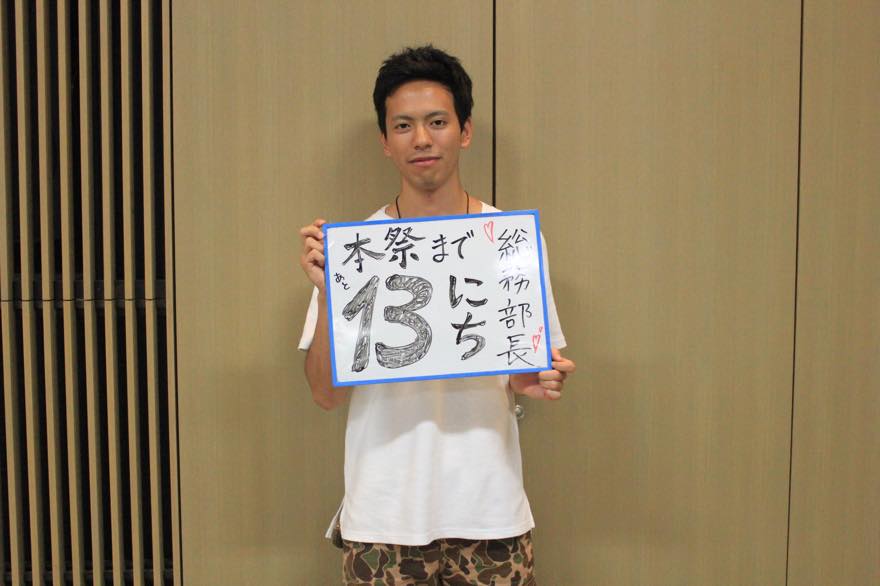 本祭まで
あと
13にち
総務部長